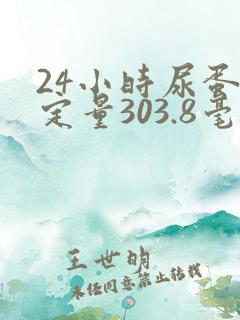 24小时尿蛋
定量303.8毫
王世明
未经同意禁止转载